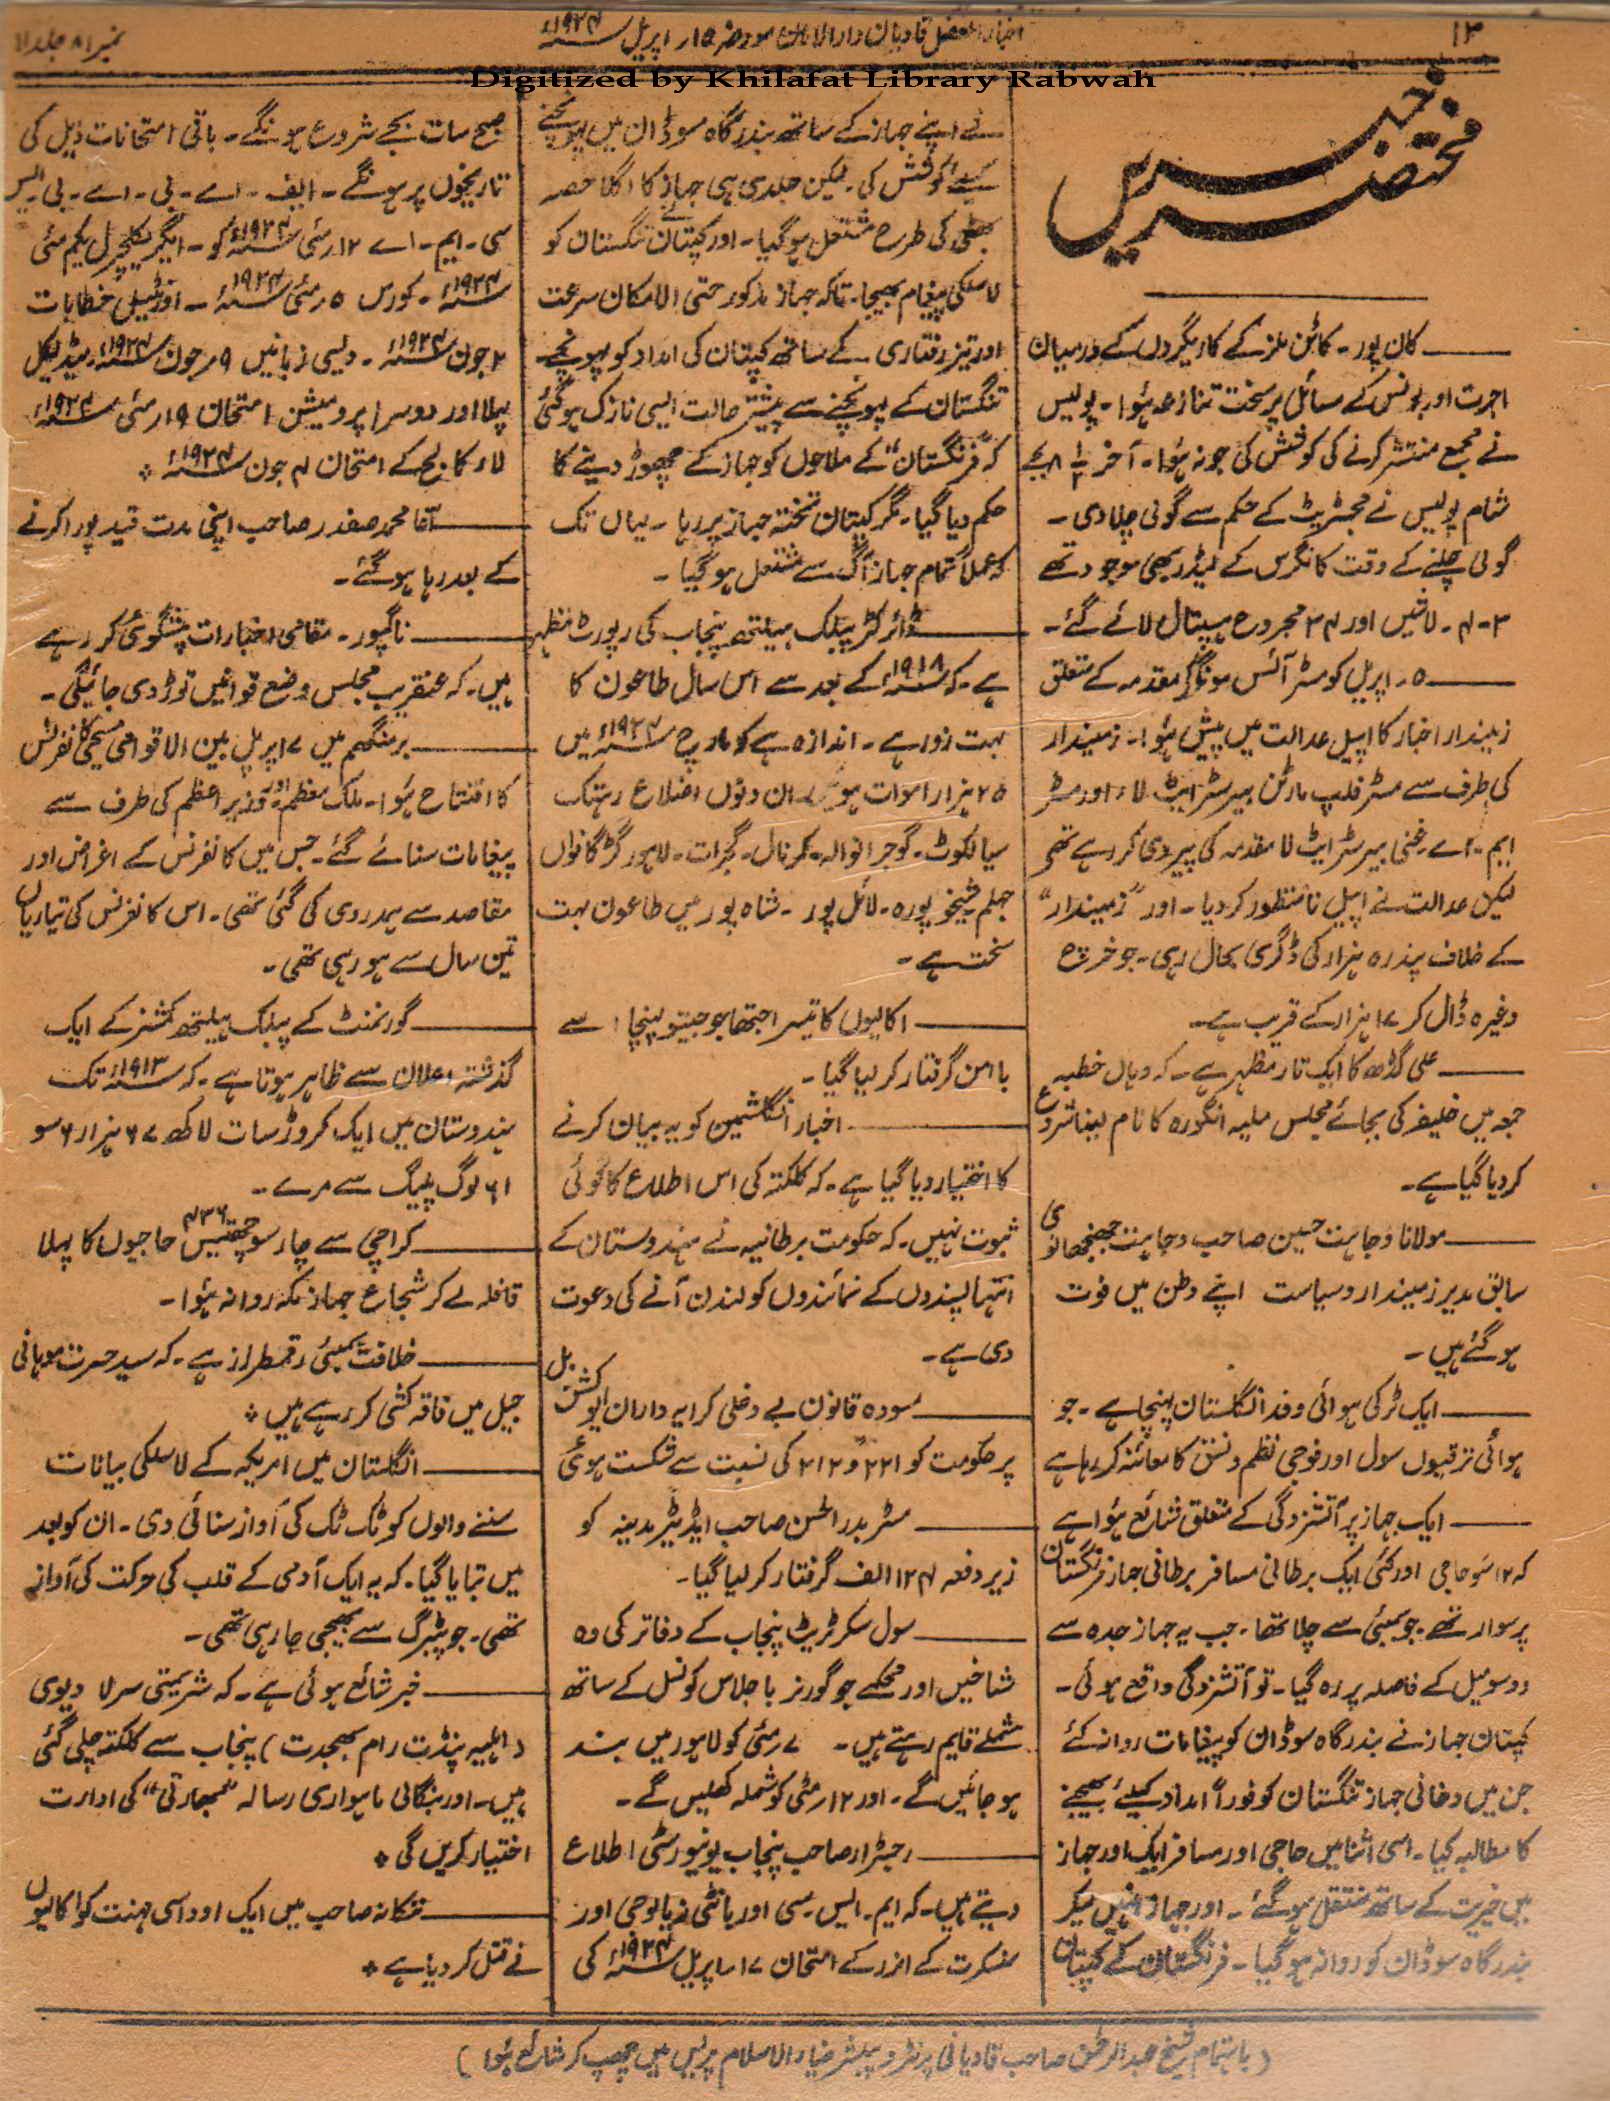 ۱۲
اخبار الفضل قادیان دارالامان مورخہ ۱۵ اپریل ۱۹۲۴ء
نمبر ۸۱ جلد ۱۱
Digitized by Khilafat Library Rabwah
مختصر خبریں
کان پور۔ کاٹن ملز کے کاریگروں کے درمیان
اجرت اور بونس کے مسائل پر سخت تنازعہ ہوا۔ پولیس
نے مجمع منتشر کرنے کی کوشش کی جو نہ ہوا۔ آخر
شام پولیس نے مجسٹریٹ کے حکم سے گولی چلادی۔
گولی چلنے کے وقت کانگرس کے لیڈر بھی موجود تھے
۳۔۴۔ لاشیں اور ۳۴ مجروح ہسپتال لائے گئے۔
۵۔ اپریل کو مسٹر آئس مونگر مقدمہ کے متعلق
زمیندار اخبار کا اپیل عدالت میں پیش ہوا۔ زمیندار
کی طرف سے مسٹر فلپ مارٹن بیرسٹر ایٹ لاء اور مسٹر
ایم۔ اے۔ غنی بیرسٹر ایٹ لا مقدمہ کی پیروی کر رہے تھے
لیکن عدالت نے اپیل نامنظور کر دیا۔ اور "زمیندار"
کے خلاف پندرہ ہزار کی ڈگری بحال رہی۔ جو خرچ
وغیرہ ڈال کر ۱۷ ہزار کے قریب ہے۔
علی گڑھ کا ایک تار مظہر ہے۔ کہ وہاں خطبہ
جمعہ میں خلیفہ کی بجائے مجلس ملیہ انگورہ کا نام لینا شروع
کر دیا گیا ہے۔
مولانا وجاہت حسین صاحب وجاہت جھنجھانوی
سابق مدیر زمیندار و سیاست اپنے وطن میں فوت
ہو گئے ہیں۔
ایک ٹرکی ہوائی وفد انگلستان پہنچا ہے۔ جو
ہوائی ترقیوں سول اور فوجی نظم و نسق کا معائنہ کر رہا ہے
ایک جہاز پر آتشزدگی کے متعلق شائع ہوا ہے
کہ ۱۲ سو حاجی اور کئی ایک برطانی مسافر برطانی جہاز فرنگستان
پر سوار تھے۔ جو بمبئی سے چلا تھا۔ جب یہ جہاز جدہ سے
دو سو میل کے فاصلہ پر رہ گیا۔ تو آتشزدگی واقع ہوئی۔
کپتان جہاز نے بندر گاہ سوڈان کو پیغامات روانہ کئے
جن میں دخانی جہاز تنگستان کو فوراً امداد کیلئے بھیجنے
کا مطالبہ کیا۔ اسی اثنا میں حاجی اور مسافر ایک اور جہاز
میں خیریت کے ساتھ منتقل ہو گئے۔ اور جہاز انہیں لیکر
بندر گاہ سوڈان کو روانہ ہو گیا۔ فرنگستان کے کپتان
نے اپنے جہاز کے ساتھ بندر گاہ سوڈان میں پہونچنے
کیلئے کوشش کی۔ لیکن جلدی ہی جہاز کا اگلا حصہ
بھٹی کی طرح مشتعل ہو گیا۔ اور کپتان نے تنگستان کو
لاسلکی پیغام بھیجا۔ تاکہ جہاز مذکور حتی الامکان سرعت
اور تیز رفتاری کے ساتھ کپتان کی امداد کو پہونچے۔
تنگستان کے پہونچنے سے پیشتر حالت ایسی نازک ہو گئی
کہ "فرنگستان" کے ملاحوں کو جہاز کے چھوڑ دینے کا
حکم دیا گیا۔ مگر کپتان تختہ جہاز پر رہا۔ یہاں تک
کہ عملاً تمام جہاز آگ سے مشتعل ہو گیا۔
ڈائرکٹر پبلک ہیلتھ پنجاب کی رپورٹ مظہر
ہے۔ کہ ۱۹۱۸ء کے بعد سے اس سال طاعون کا
بہت زور ہے۔ اندازہ ہے کہ مارچ ۱۹۲۴ء میں
۲۵ ہزار اموات ہوئیں۔ ان دنوں اضلاع رہتک
سیالکوٹ۔ گوجرانوالہ۔ کرنال۔ گجرات۔ لاہور گڑگانواں
جہلم۔ شیخوپورہ۔ لائل پور۔ شاہ پور میں طاعون بہت
سخت ہے۔
اکالیوں کا تیسرا جتھا جو جیتو پہنچا اسے
با امن گرفتار کر لیا گیا۔
اخبار انگلشمین کو یہ بیان کرنے
کا اختیار دیا گیا ہے۔ کہ کلکتہ کی اس اطلاع کا کوئی
ثبوت نہیں۔ کہ حکومت برطانیہ نے ہندوستان کے
انتہا پسندوں کے نمائندوں کو لندن آنے کی دعوت
دی ہے۔
مسودہ قانون بے دخلی کرایہ داران ایوکشن بل
پر حکومت کو ۲۲۱ و ۲۱۲ کی نسبت سے شکست ہوئی
مسٹر بدر الحسن صاحب ایڈیٹر مدینہ کو
زیر دفعہ ۱۲۴ الف گرفتار کر لیا گیا۔
سول سکرٹریٹ پنجاب کے دفاتر کی وہ
شاخیں اور محکمے جو گورنر باجلاس کونسل کے ساتھ
شملے قایم رہتے ہیں۔ ۷ مئی کو لاہور میں بند
ہو جائیں گے۔ اور ۱۲ مئی کو شملہ کھلیں گے۔
رجسٹرار صاحب پنجاب یونیورسٹی اطلاع
دیتے ہیں۔ کہ ایم۔ ایس۔ سی اور باٹنی زیالوجی اور
سنسکرت کے انرز کے امتحان ۱۷ اپریل ۱۹۲۴ء کی
صبح سات بجے شروع ہونگے۔ باقی امتحانات ذیل کی
تاریخوں پر ہونگے۔ ایف۔ اے۔ بی۔ اے۔ بی۔ ایس
سی۔ ایم۔ اے ۱۲ مئی ۱۹۲۴ء کو۔ ایگریکلچرل یکم مئی
۱۹۲۴ء۔ کورس ۵ مئی ۱۹۲۴ء۔ اورنٹیل خطابات
۲ جون ۱۹۲۴ء۔ دیسی زبانیں ۹ جون ۱۹۲۴ء۔ میڈیکل
پہلا اور دوسرا پروفیشن امتحان ۱۹ مئی ۱۹۲۴ء
لاء کالج کے امتحان ۴ جون ۱۹۲۴ء
آغا محمد صفدر صاحب اپنی مدت قید پورا کرنے
کے بعد رہا ہو گئے۔
ناگپور۔ مقامی اخبارات پیشگوئی کر رہے
ہیں۔ کہ عنقریب مجلس وضع قوانین توڑ دی جائیگی۔
برمنگھم میں ۷ اپریل بین الاقوامی مسیحی کانفرنس
کا افتتاح ہوا۔ ملک معظم اور وزیر اعظم کی طرف سے
پیغامات سنائے گئے۔ جس میں کانفرنس کے اغراض اور
مقاصد سے ہمدردی کی گئی تھی۔ اس کانفرنس کی تیاریاں
تین سال سے ہو رہی تھی۔
گورنمنٹ کے پبلک ہیلتھ کمشنر کے ایک
گذشتہ اعلان سے ظاہر ہوتا ہے۔ کہ ۱۹۱۳ء تک
ہندوستان میں ایک کروڑ سات لاکھ ۶۷ ہزار ۶ سو
۶۱ لوگ پلیگ سے مرے۔
کراچی سے چار سو چھتیس ۴۳۶ حاجیوں کا پہلا
قافلہ لے کر شجاع جہاز مکہ روانہ ہوا۔
خلافت بمبئی رقمطراز ہے۔ کہ سید حسرت موہانی
جیل میں فاقہ کشی کر رہے ہیں
انگلستان میں امریکہ کے لاسلکی بیانات
سننے والوں کو ٹک ٹک کی آواز سنائی دی۔ ان کو بعد
میں بتایا گیا۔ کہ یہ ایک آدمی کے قلب کی حرکت کی آواز
تھی۔ جو پٹبرگ سے بھیجی جا رہی تھی۔
خبر شائع ہوئی ہے۔ کہ شریمتی سرلا دیوی
(اہلیہ پنڈت رام بھجدت) پنجاب سے کلکتہ چلی گئی
ہیں۔ اور بنگالی ماہواری رسالہ "بھارتی" کی ادارت
اختیار کریں گی
ننکانہ صاحب میں ایک اوداسی مہنت کو اکالیوں
نے قتل کر دیا ہے
(باہتمام شیخ عبدالرحمن صاحب قادیانی پرنٹر و پبلشر ضیاء الاسلام پریس میں چھپ کر شائع ہوا)